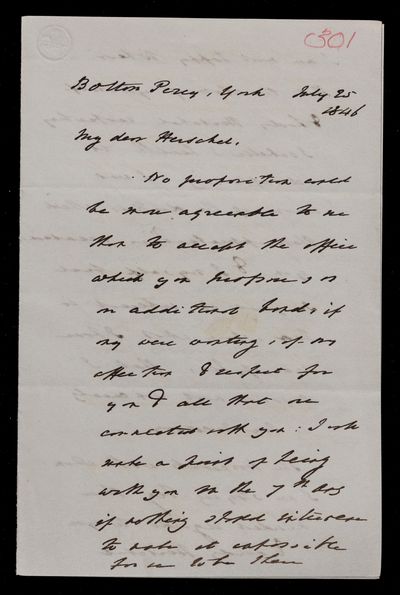 301
Bolton Percy, York July 25
1846
My dear Herschel,
No proposition could
be more agreeable to me
than to accept the office
which you propose; as
an additional bond, if
any were wanting, of my
affection & respect for
you & all that are
connected with you: I will
make a point of being
with you on the 7th Aug
if nothing should intervene
to make it impossible
for me to be there